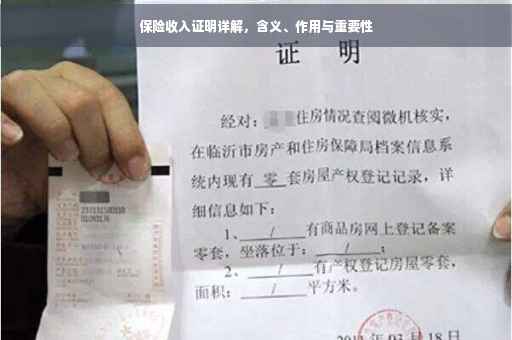 保险收入证明详解，含义、作用与重要性
证 明
经对：住房情况查阅微机核实，
在临沂市房产和住房保障局档案信息系
统内现有 零 套房屋产权登记记录，详
细信息如下：
1、 / 有商品房网上登记备案
零套，坐落位于： / ；
2、 / 有产权登记房屋零套，
面积： / 平方米。
年03月18日